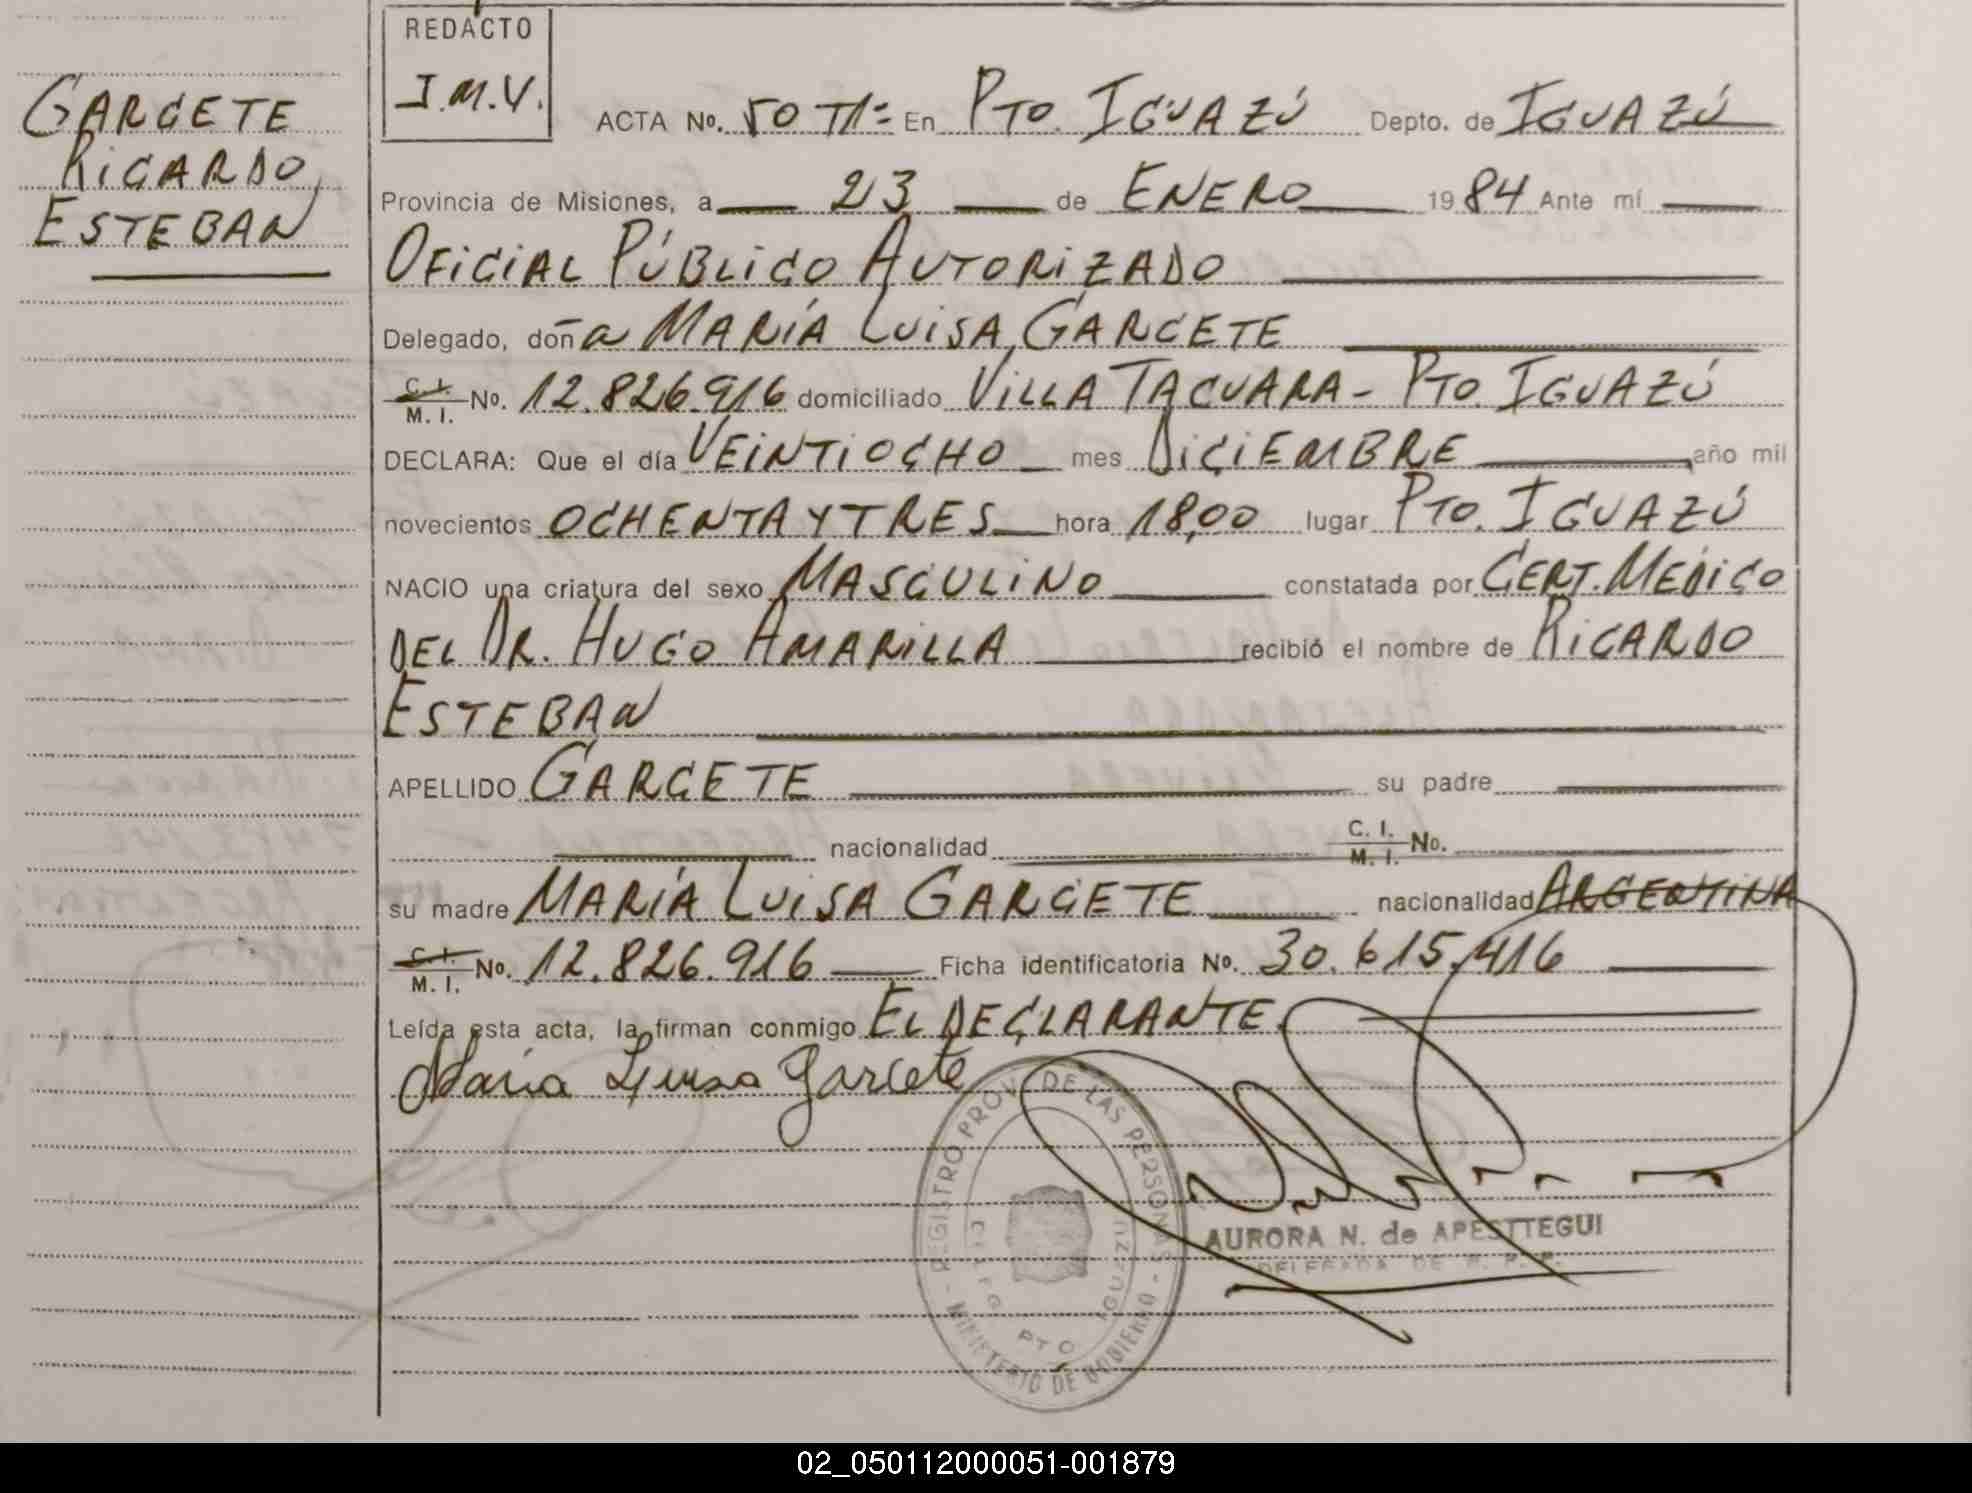 REDACTO
J.M.V.
GARCETE
RICARDO
ESTEBAN
ACTA No. 50 T1º En PTO. IGUAZÚ Depto. de IGUAZÚ
Provincia de Misiones, a 23 de ENERO 1984 Ante mí
OFICIAL PÚBLICO AUTORIZADO
Delegado, doña MARÍA LUISA GARCETE
C. I. M. I. No. 12.826.916 domiciliado VILLA TACUARA - PTO. IGUAZÚ
DECLARA: Que el día VEINTIOCHO mes DICIEMBRE año mil
novecientos OCHENTA Y TRES hora 18,00 lugar PTO. IGUAZÚ
NACIO una criatura del sexo MASCULINO constatada por CERT. MEDICO
DEL DR. HUGO AMARILLA recibió el nombre de RICARDO
ESTEBAN
APELLIDO GARCETE su padre
nacionalidad C. I. M. I. No.
su madre MARÍA LUISA GARCETE nacionalidad ARGENTINA
C. I. M. I. No. 12.826.916 Ficha identificatoria No. 30.615.416
Leída esta acta, la firman conmigo EL DECLARANTE
María Luisa Garcete
REGISTRO PROV. DE LAS PERSONAS - MINISTERIO DE GOBIERNO -
PTO IGUAZU
AURORA N. de APESTTEGUI
DELEGADA DE R. P. P.
02_050112000051-001879